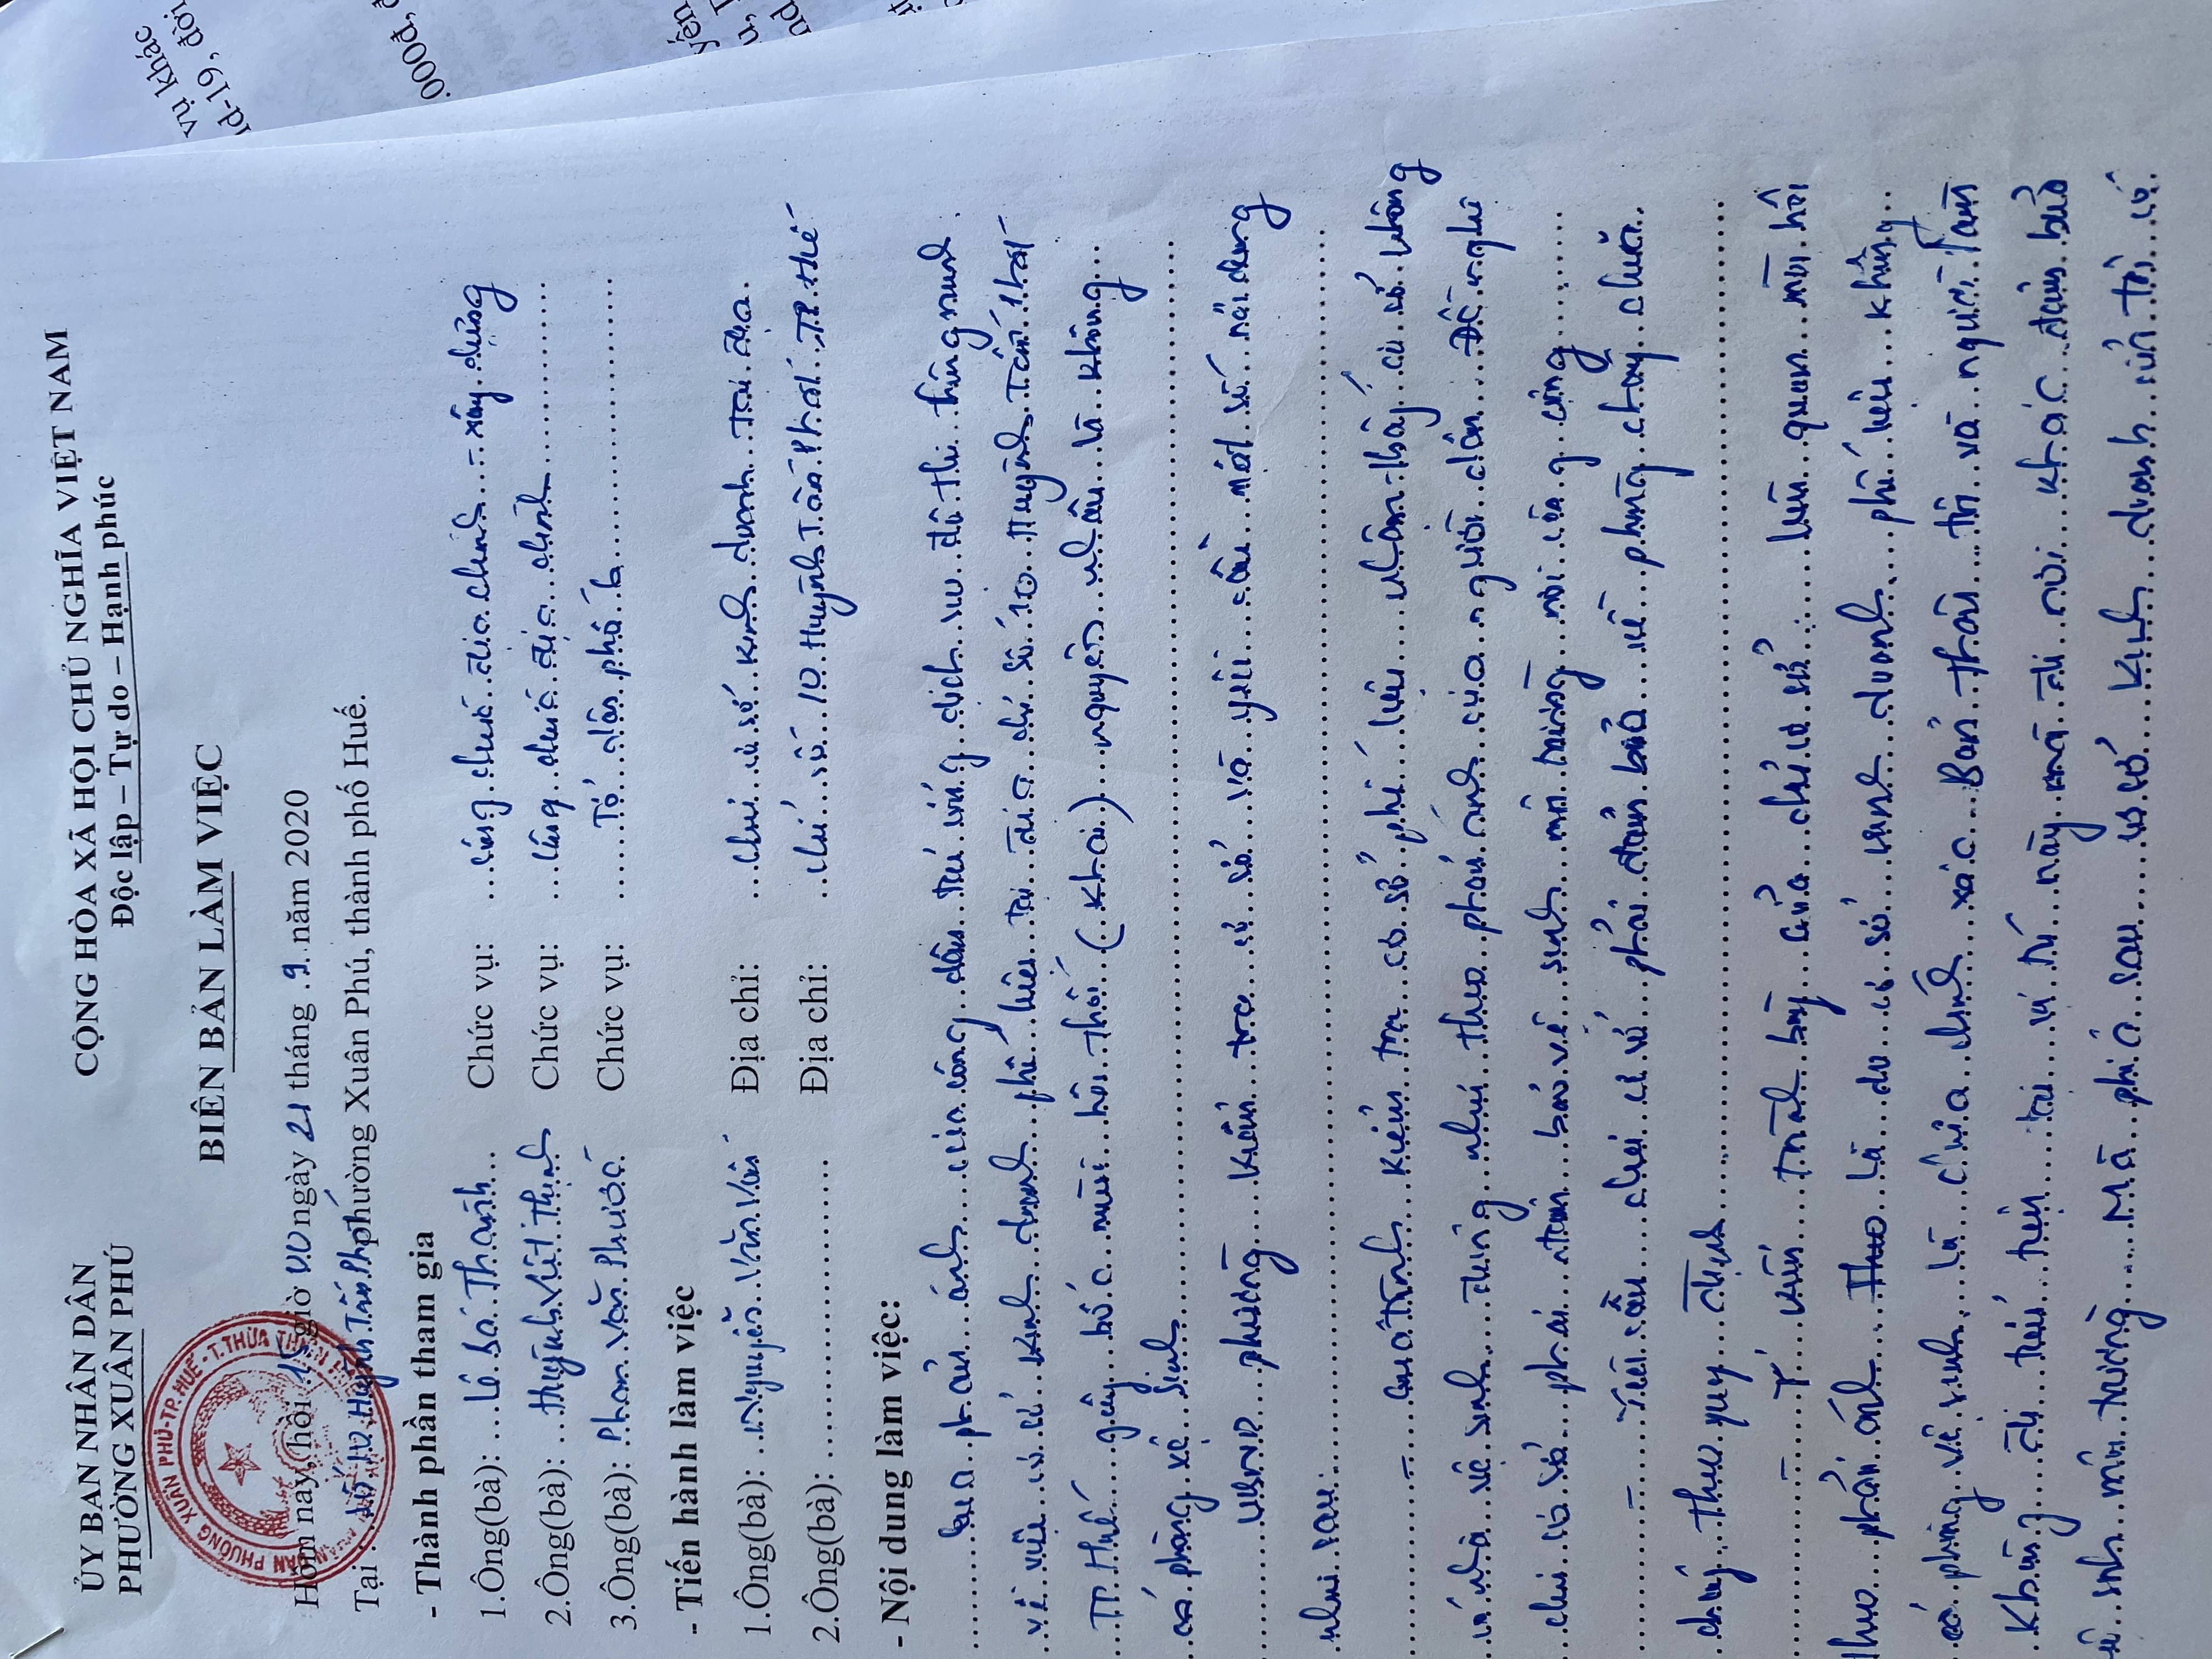 ỦY BAN NHÂN DÂN
PHƯỜNG XUÂN PHÚ
CỘNG HÒA XÃ HỘI CHỦ NGHĨA VIỆT NAM
Độc lập – Tự do – Hạnh phúc
BIÊN BẢN LÀM VIỆC
Hôm nay, hồi 15 giờ 00 ngày 21 tháng 9 năm 2020
Tại số 10 Huỳnh Tấn Phát phường Xuân Phú, thành phố Huế.
- Thành phần tham gia
1.Ông(bà): Lê Bá Thanh Chức vụ: công chức địa chính - xây dựng
2.Ông(bà): Huỳnh Viết Thịnh Chức vụ: công chức địa chính
3.Ông(bà): Phan Văn Phước Chức vụ: Tổ dân phố 6
- Tiến hành làm việc
1.Ông(bà): Nguyễn Văn Địa chỉ: chủ cơ sở kinh doanh
2.Ông(bà): Địa chỉ: số 10 Huỳnh Tấn Phát TP Huế
- Nội dung làm việc:
Qua phản ánh của công dân trên dịch vụ đô thị thông minh
về việc cơ sở kinh doanh phế liệu tại địa chỉ số 10 Huỳnh Tấn Phát
TP Huế gây bốc mùi hôi thối (khai) nguyên nhân là không
có phòng vệ sinh
UBND phường kiểm tra cơ sở và yêu cầu một số nội dung
như sau:
- Quá trình kiểm tra cơ sở phế liệu nhận thấy cơ sở không
có nhà vệ sinh đúng như theo phản ánh của người dân. Đề nghị
chủ cơ sở phải đảm bảo vệ sinh môi trường nơi công cộng
- Yêu cầu chủ cơ sở phải đảm bảo về phòng cháy chữa
cháy theo quy định
- Ý kiến trình bày của chủ cơ sở: liên quan mùi hôi
theo phản ánh là do cơ sở kinh doanh phế liệu không
có phòng vệ sinh, là chưa chính xác. Bản thân tôi và người làm
không đi tiểu tiện tại vị trí này mà đi nơi khác đảm bảo
vệ sinh môi trường. Mà phía sau cơ sở kinh doanh của tôi có
PHƯỜNG XUÂN PHÚ-TP.HUẾ - T.THỪA THIÊN HUẾ
vụ khác
000đ,